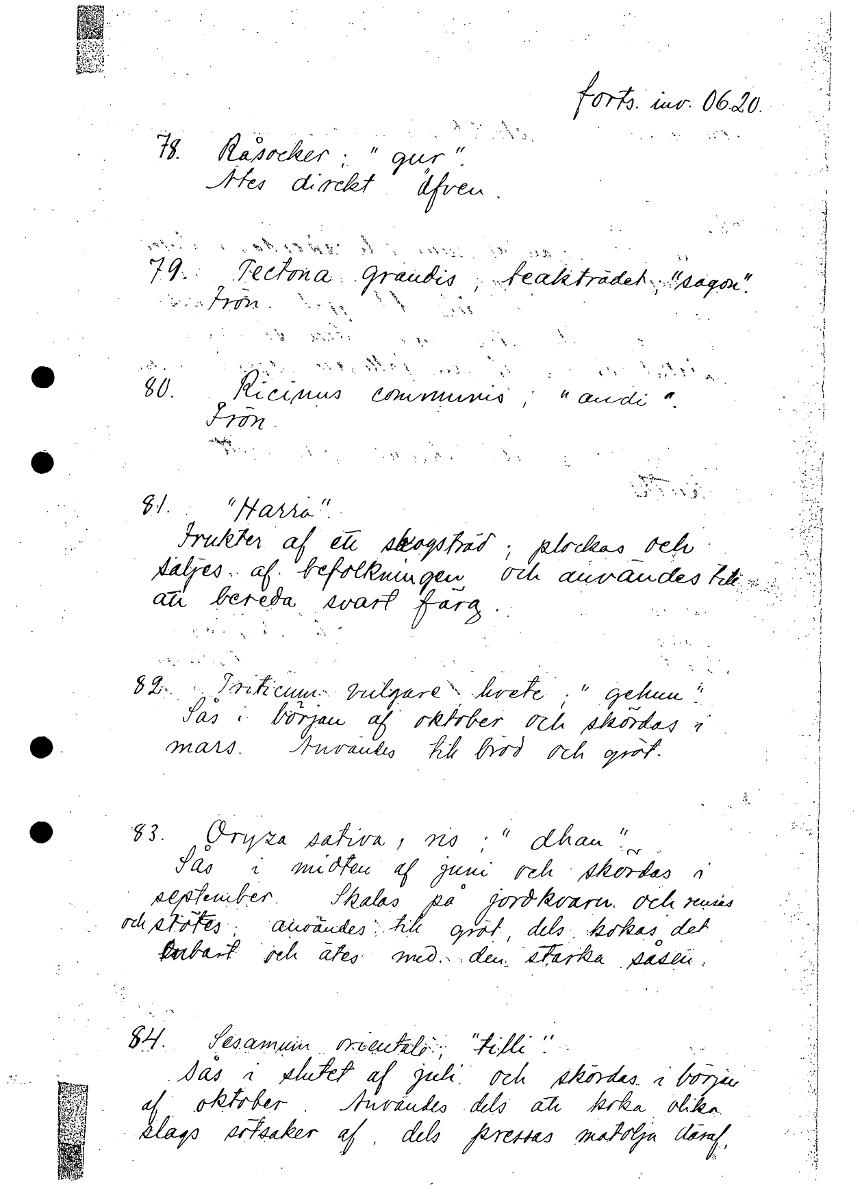 forts. inv. 06.20.
78. Råsocker ; "gur".
Ätes direkt äfven.
79. Tectona grandis, teakträdet, "sagon".
Frön.
80. Ricinus communis ; "andi".
Frön.
81. "Harra".
Frukter af ett skogsträd ; plockas och
säljes af befolkningen och användes till
att bereda svart färg.
82. Triticum vulgare hvete ; "gehun".
Sås i början af oktober och skördas i
mars. Användes till bröd och gröt.
83. Oryza sativa, ris ; "dhan".
Sås i midten af juni och skördas i
september. Skalas på jordkvarn och rensas
och stötes, användes till gröt, dels kokas det
enbart och ätes med den starka såsen.
84. Sesamum orientale, "tilli".
Sås i slutet af juli och skördas i början
af oktober. Användes dels att koka olika
slags sötsaker af, dels pressas matolja däraf.